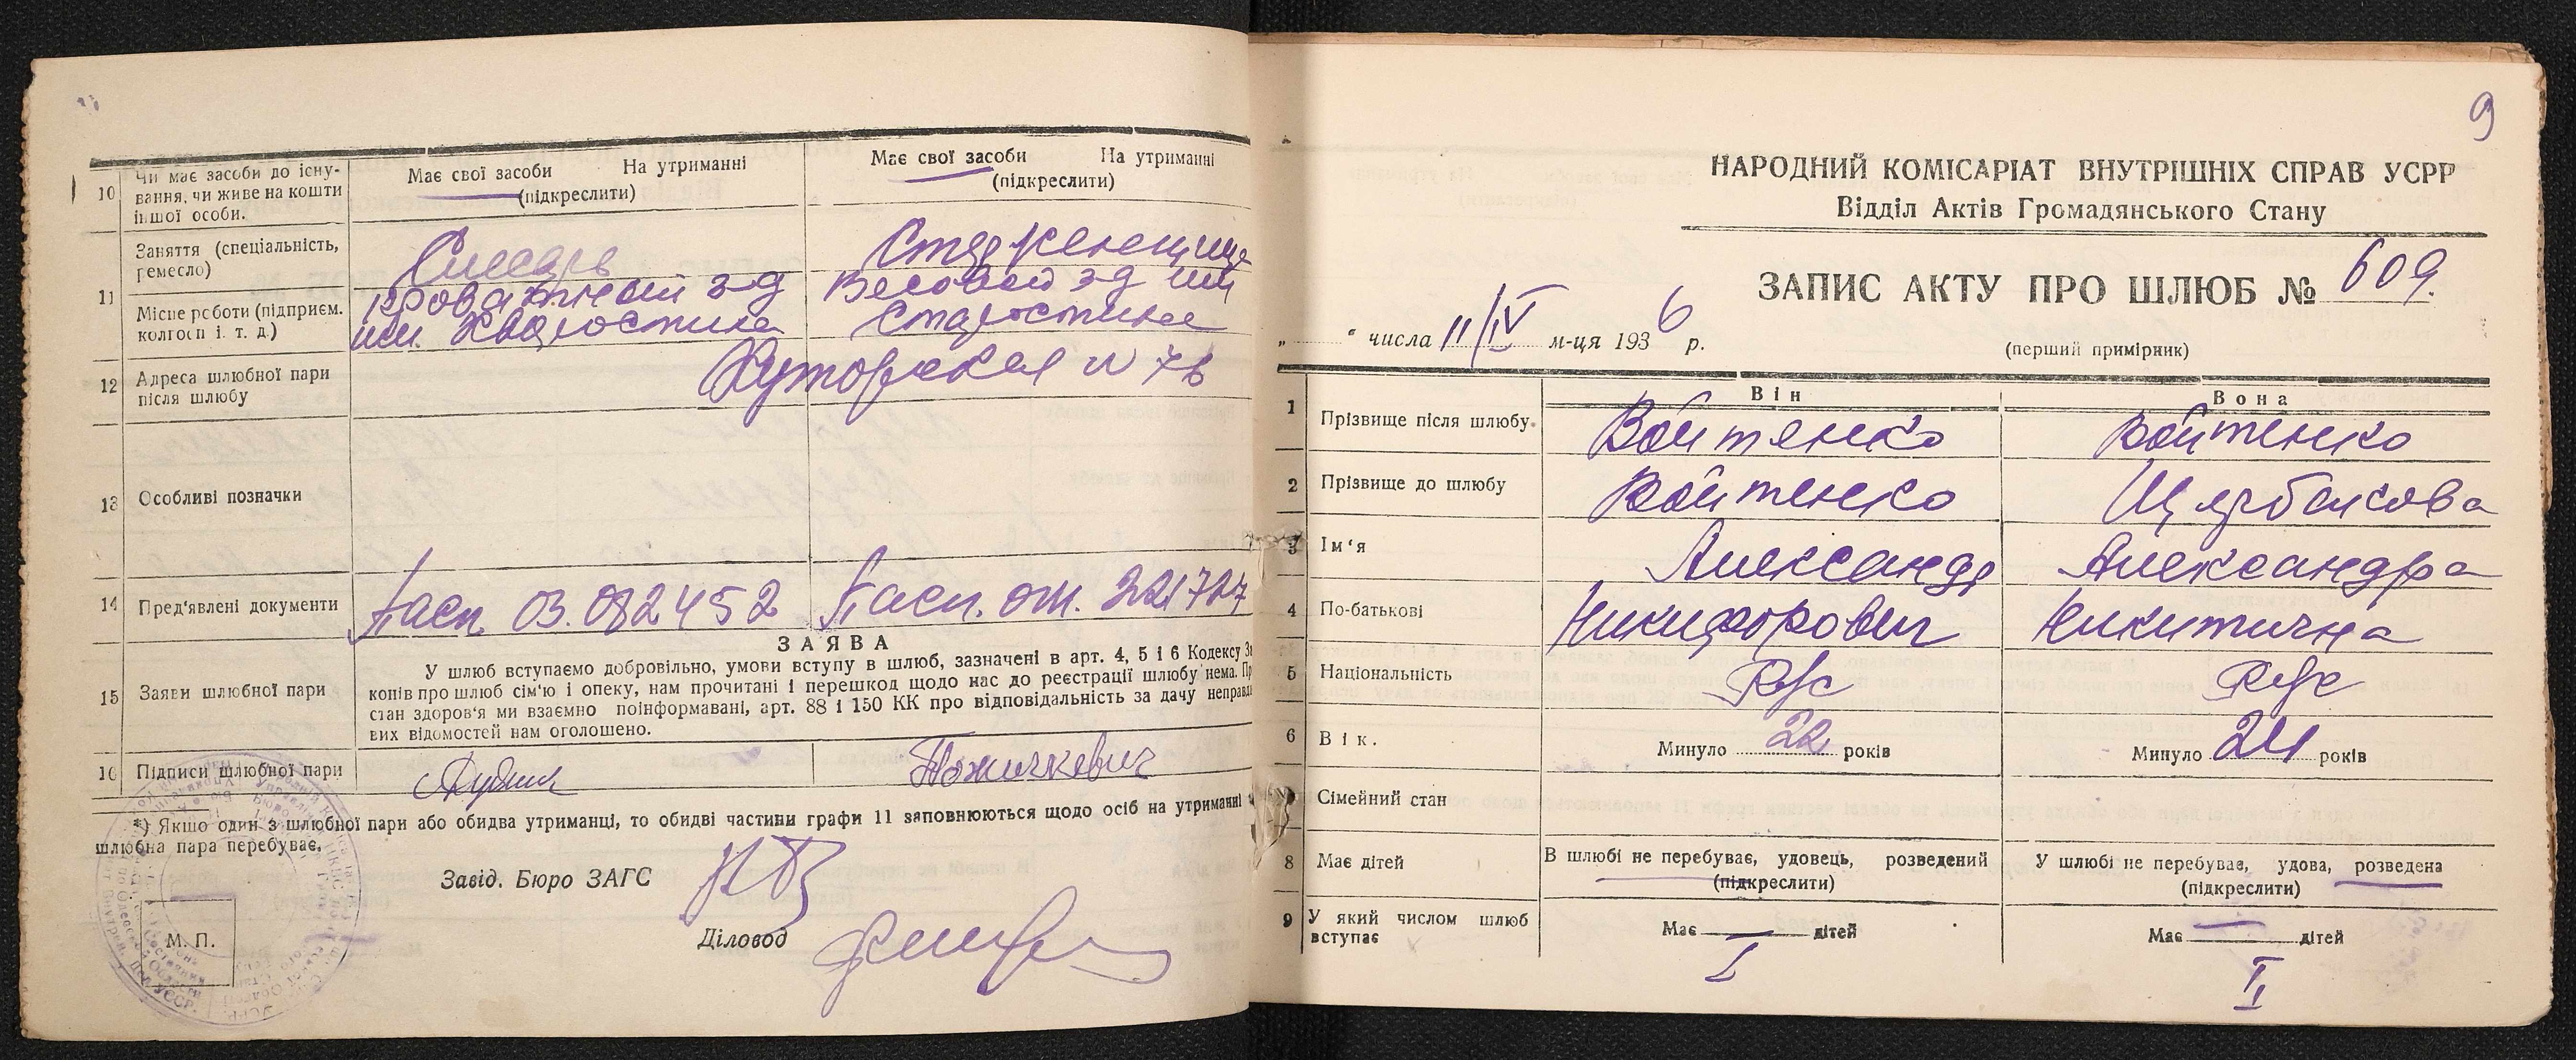 10 Чи має засоби до існу-
вання, чи живе на кошти
іншої особи.
Має свої засоби На утриманні
(підкреслити)
Має свої засоби На утриманні
(підкреслити)
11 Заняття (спеціальність,
ремесло)
Слесарь
Місце роботи (підприєм.
колгосп і. т. д.)
Кроватный з-д
им. Хворостина
Весовой з-д им
Старостина
12 Адреса шлюбної пари
після шлюбу
Хуторская № 76
13 Особливі позначки
14 Пред'явлені документи
Пасп. 03.082452
Пасп. от.
15 Заяви шлюбної пари
ЗАЯВА
У шлюб вступаємо добровільно, умови вступу в шлюб, зазначені в арт. 4, 5 і 6 Кодексу За
конів про шлюб сім'ю і опеку, нам прочитані і перешкод щодо нас до реєстрації шлюбу нема. Пр
стан здоров'я ми взаємно поінформавані, арт. 88 і 150 КК про відповідальність за дачу неправд
вих відомостей нам оголошено.
16 Підписи шлюбної пари
*) Якщо один з шлюбної пари або обидва утриманці, то обидві частини графи 11 заповнюються щодо осіб на утриманні
шлюбна пара перебуває.
Завід. Бюро ЗАГС
М. П.
Діловод
9
НАРОДНИЙ КОМІСАРІАТ ВНУТРІШНІХ СПРАВ УСРР
Відділ Актів Громадянського Стану
ЗАПИС АКТУ ПРО ШЛЮБ № 609.
„ “ числа 11/IV м-ця 1936 р.
(перший примірник)
Він Вона
1 Прізвище після шлюбу Войтенко Войтенко
2 Прізвище до шлюбу Войтенко Щербакова
3 Ім'я Александр Александра
4 По-батькові Никифорович Никитична
5 Національність Рус Рус
6 Вік. Минуло 22 років Минуло 24 років
7 Сімейний стан
8 Має дітей В шлюбі не перебуває, удовець, розведений
(підкреслити)
У шлюбі не перебуває, удова, розведена
(підкреслити)
9 У який числом шлюб
вступає
Має — дітей
Має — дітей
I
II